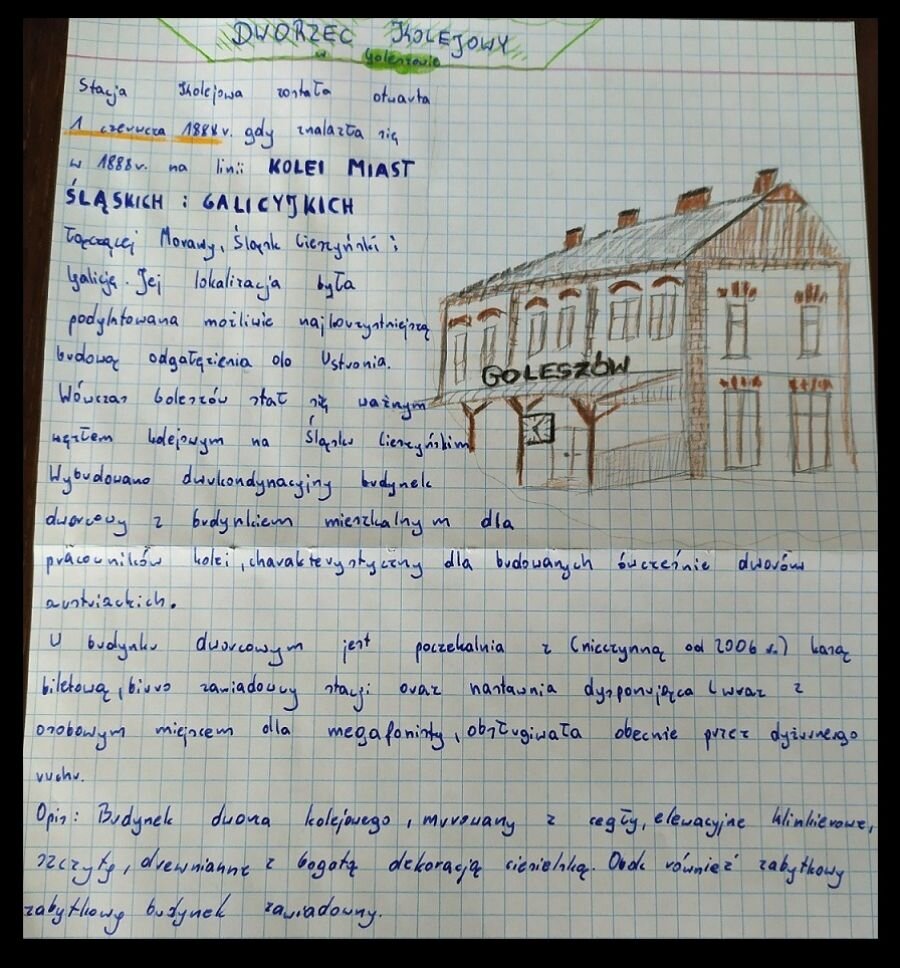 DWORZEC KOLEJOWY
w Goleszowie
Stacja Kolejowa została otwarta
1 czerwca 1888 r. gdy znalazła się
w 1888 r. na linii KOLEI MIAST
ŚLĄSKICH i GALICYJKICH
łączącej Morawy, Śląsk Cieszyński i
Galicję. Jej lokalizacja była
podyktowana możliwie najkorzystniejszą
budową odgałęzienia do Ustronia.
Wówczas Goleszów stał się ważnym
węzłem kolejowym na Śląsku Cieszyńskim
Wybudowano dwukondynacyjny budynek
dworcowy z budynkiem mieszkalnym dla
pracowników kolei, charakterystyczny dla budowanych ówcześnie dworów
austriackich.
W budynku dworcowym jest poczekalnia z (nieczynną od 2006 r.) kasą
biletową, biuro zawiadowcy stacji oraz nastawnia dysponująca (wraz z
osobowym miejscem dla megafonisty, obsługiwała obecnie przez dyżurnego
ruchu.
Opis: Budynek dworca kolejowego, murowany z cegły, elewacyjne klinkierowe,
szczyty, drewnianne z bogotą dekoracją ciesielską. Obok również zabytkowy
zabytkowy budynek zawiadowny.
GOLESZÓW